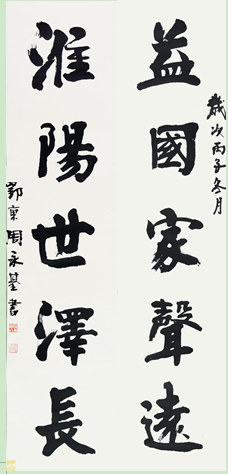 歲次丙子冬月
益國家聲遠
淮陽世澤長
鄂東周永基書